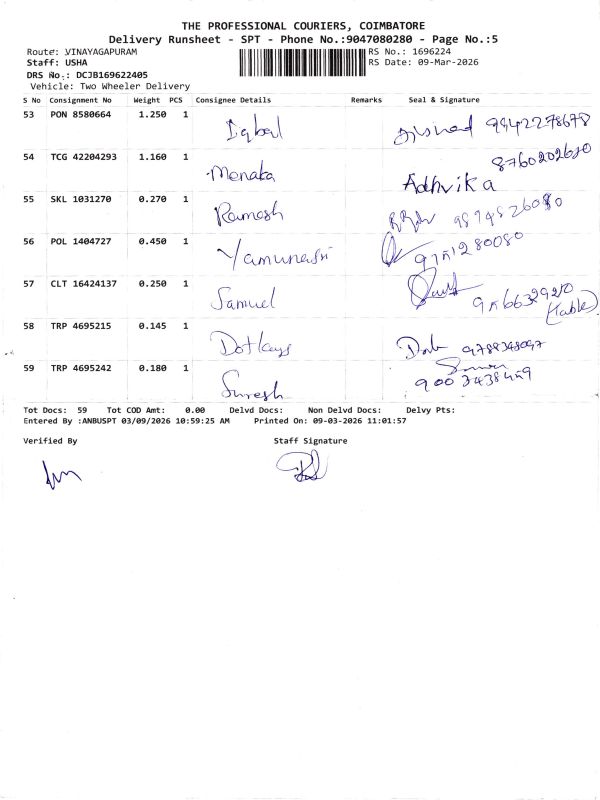 THE PROFESSIONAL COURIERS, COIMBATORE
Delivery Runsheet - SPT - Phone No.:9047080280 - Page No.:5
Route: VINAYAGAPURAM RS No.: 1696224
Staff: USHA RS Date: 09-Mar-2026
DRS No.: DCJB169622405
Vehicle: Two Wheeler Delivery
S No Consignment No Weight PCS Consignee Details Remarks Seal & Signature
53 PON 8580664 1.250 1 Iqbal 9942278678
54 TCG 42204293 1.160 1 Menaka Adhvika 8760202680
55 SKL 1031270 0.270 1 Ramesh
56 POL 1404727 0.450 1 Yamunasri
57 CLT 16424137 0.250 1 Samuel (Table)
58 TRP 4695215 0.145 1 Dot Kays
59 TRP 4695242 0.180 1 Suresh
Tot Docs: 59 Tot COD Amt: 0.00 Delvd Docs: Non Delvd Docs: Delvy Pts:
Entered By :ANBUSPT 03/09/2026 10:59:25 AM Printed On: 09-03-2026 11:01:57
Verified By Staff Signature